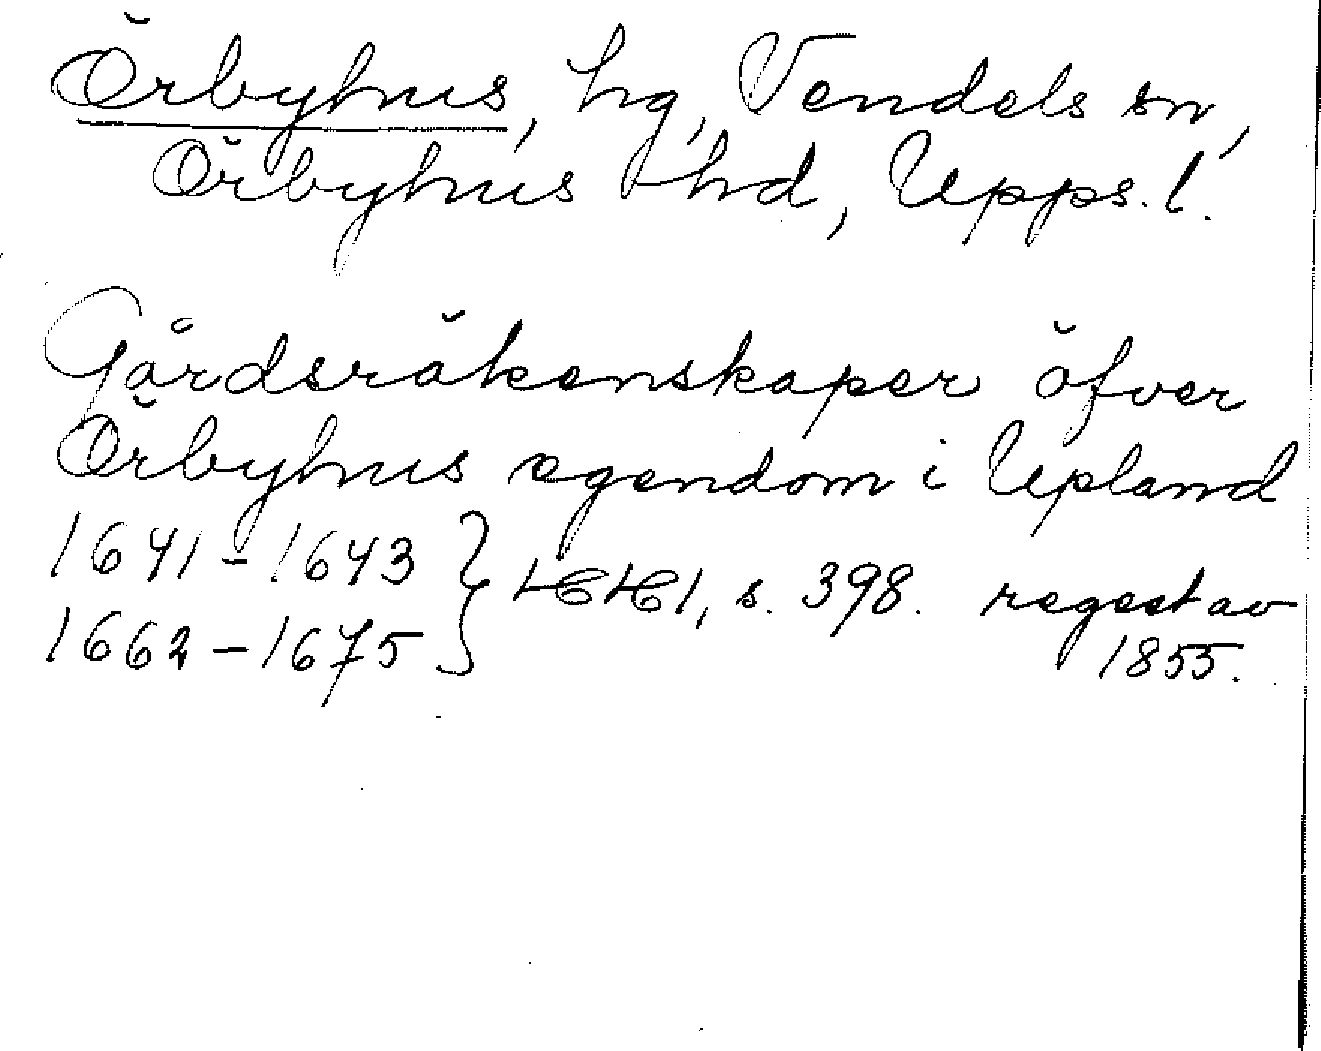 Örbyhus, hg, Vendels sn,
Örbyhus hd, Upps. l.
Gårdsräkenskaper öfver
Örbyhus egendom i Upland
1641-1643
1662-1675 } s. 398. regest av
1855.